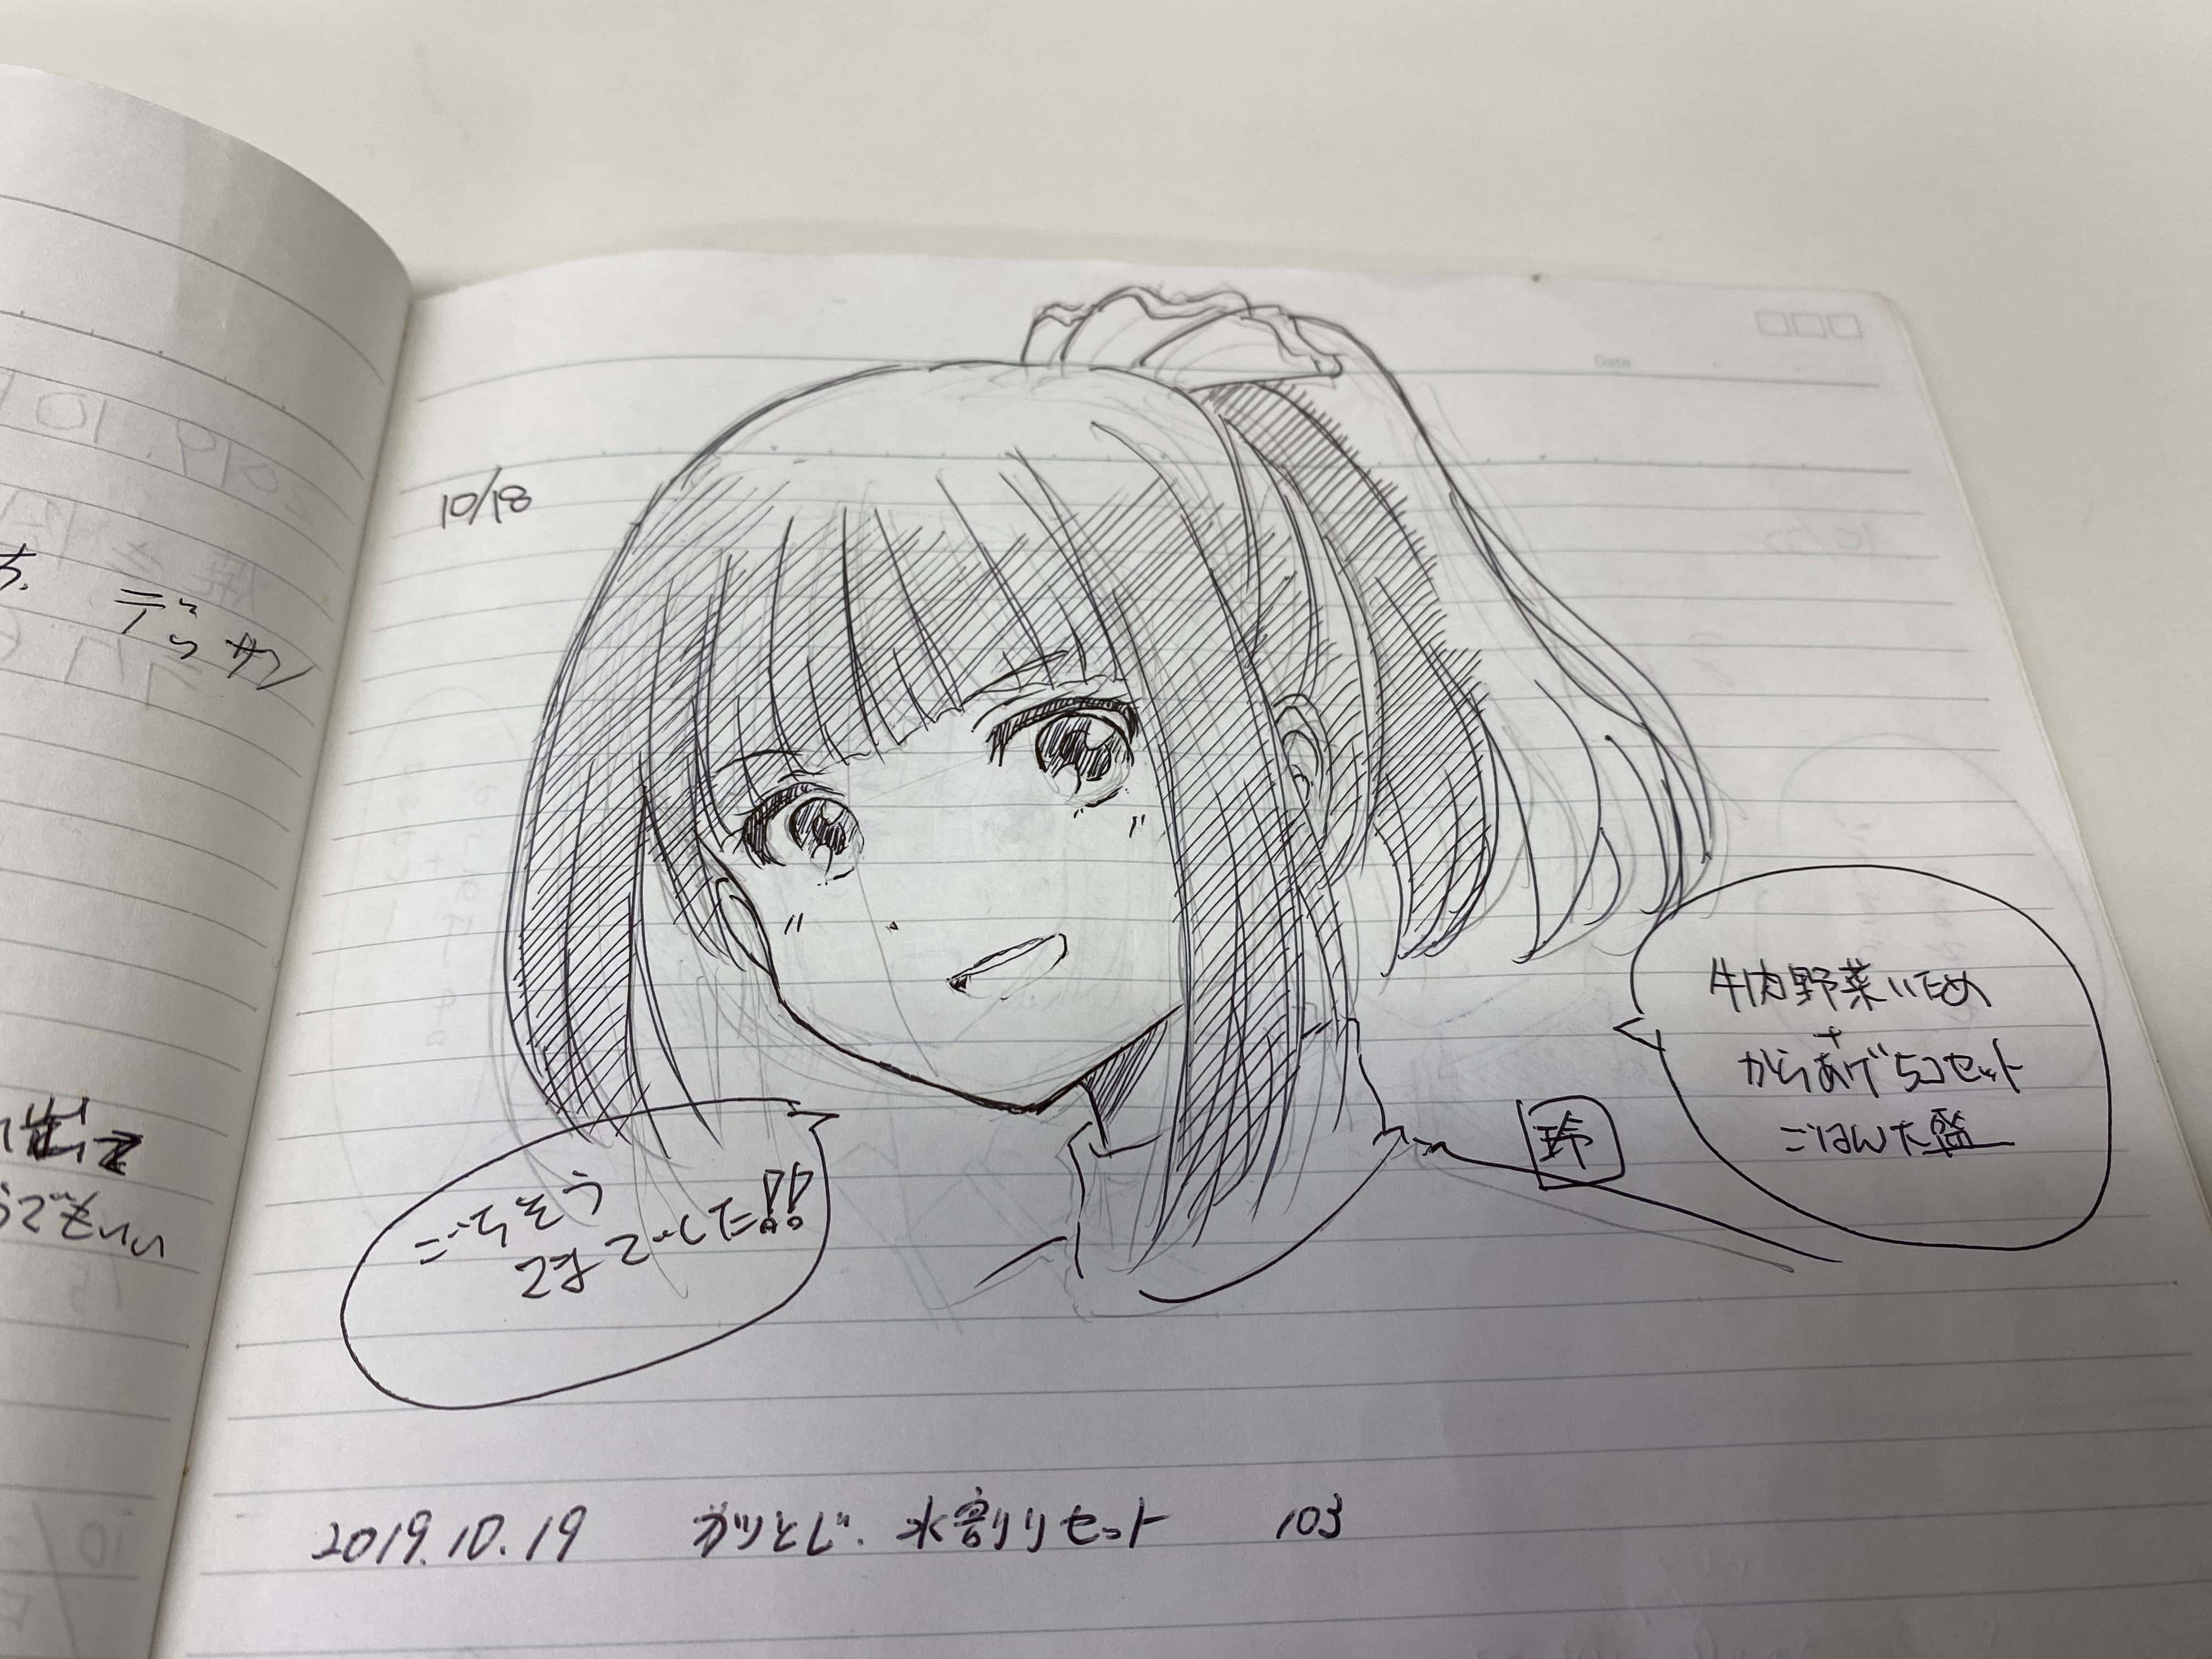 デッサン
でもいい
Date
10/18
牛肉野菜いため
+
からあげ5コセット
ごはん大盛
ごちそう
さまでした!!
2019.10.19 ガツとじ. 水割りセット 103